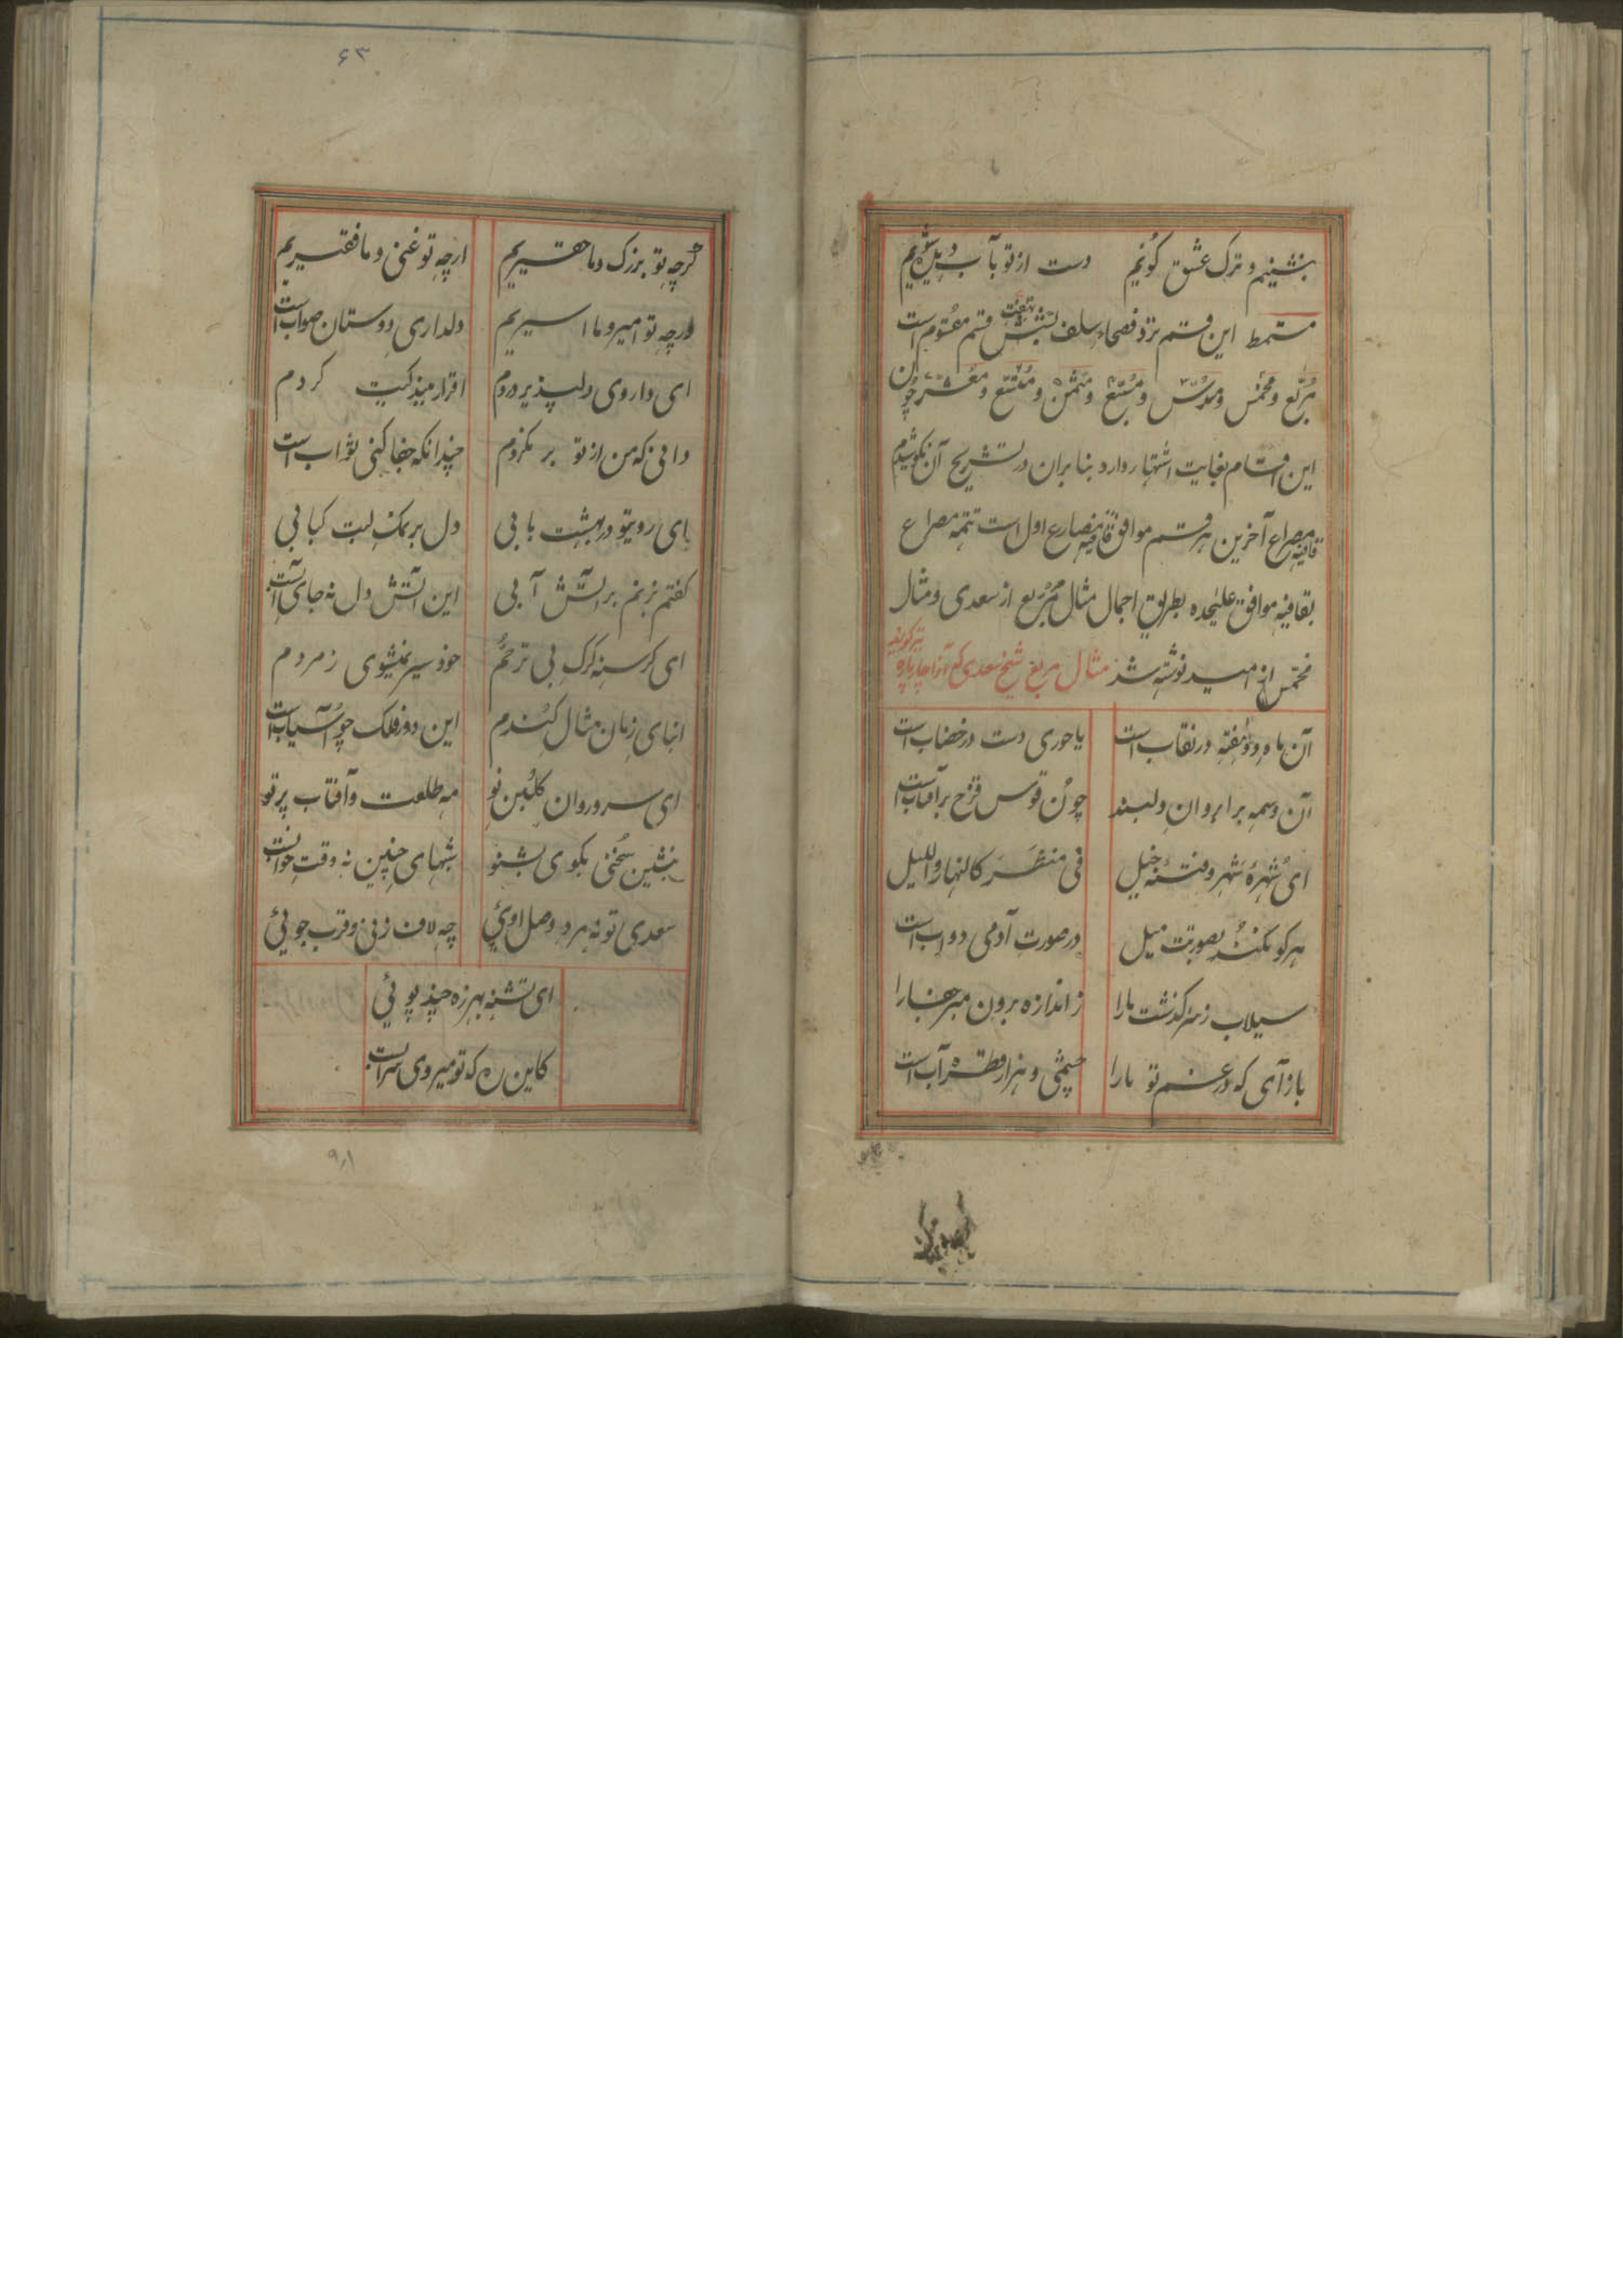 بنشینیم و ترک عشق گوئیم دست از تو بآب دیده شوئیم
مسمط این قسم نزد فصحاء سلف بشش قسم مقسوم است
بهفت
مربع و مخمس و مسدس و مسبع و مثمن و متسع و معشر چون
این اقسام بغایت اشتهار دارد بنابران در تشریح آن نکوشیدم
قافیه مصراع آخرین هر قسم موافق قافیه مصارع اول است تتمه مصراع
بقافیه موافق علیحده بطریق اجمال مثال مربع از سعدی و مثال
مخمس از امید نوشته شد مثال مربع شیخ سعدی که آنرا چارپاره
نیز گویند
آن ماه دو هفته در نقاب است یا حوری دست در خضاب است
آن وسمه بر ابروان دلبند چون قوس قزح بر آفتاب است
ای شهرهٔ شهر و فتنهٔ خیل فی منظرک النهار واللیل
هر کو نکند بصورتت میل در صورت آدمی دواب است
سیلاب ز سر گذشت ما را ز اندازه برون مبر جفا را
باز آی که در غم تو ما را چشمی و هزار قطره آب است
۶۳
گرچه تو بزرگ و ما حقیریم ارچه تو غنی و ما فقیریم
ورچه تو امیر و ما اسیریم دلداری دوستان صواب است
ای داروی دلپذیر دردم اقرار ببندگیت کردم
دانی که من از تو بر نگردم چندانکه جفا کنی ثواب است
بای رویتو در بهشت بابی دل بر نمک لبت کبابی
گفتم بزنم بر آتش آبی این آتش دل نه جای آبست
ای گرسنه گرگ بی ترحم خود سیر نمیشوی ز مردم
ابنای زمان مثال گندم این دور فلک چو آسیاب است
ای سرو روان گلبن نو مه طلعت و آفتاب پرتو
بنشین سخنی بگوی بشنو شبهای چنین نه وقت خوابست
سعدی تو نه مرد وصل اوئی چه لاف زنی و قرب جوئی
ای تشنه بهرزه چند پوئی
کاین ره که تو میروی سرابست